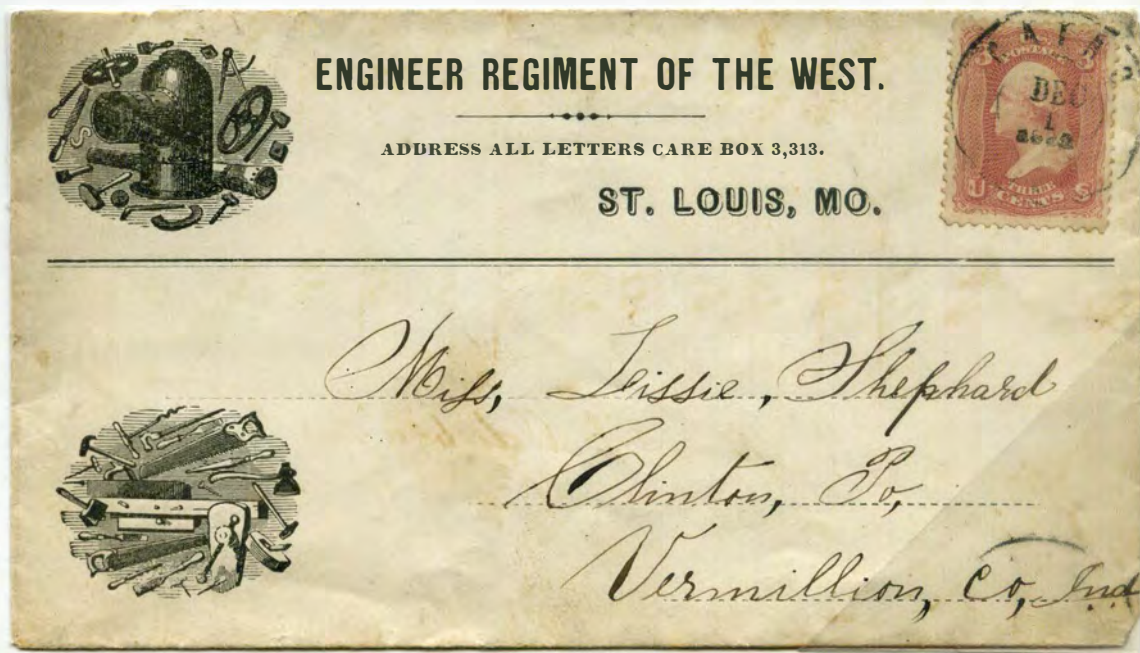 ENGINEER REGIMENT OF THE WEST.
ADDRESS ALL LETTERS CARE BOX 3,313.
ST. LOUIS, MO.
POSTAGE
3 3
DEC
1
U THREE S
CENTS
Miss, Lissie, Shephard
Clinton, Po,
Vermillion, Co, Ind